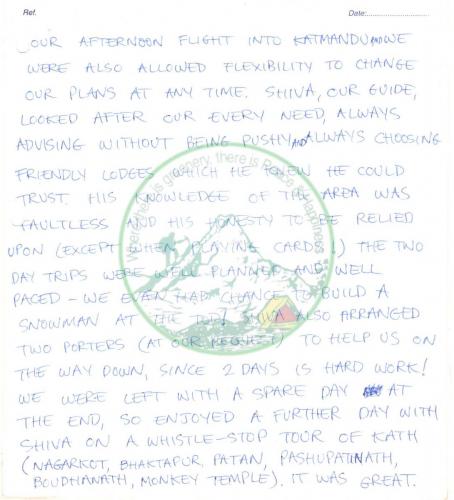 Ref. Date:
OUR AFTERNOON FLIGHT INTO KATMANDU AND WE
WERE ALSO ALLOWED FLEXIBILITY TO CHANGE
OUR PLANS AT ANY TIME. SHIVA, OUR GUIDE,
LOOKED AFTER OUR EVERY NEED, ALWAYS
ADVISING WITHOUT BEING PUSHY AND ALWAYS CHOOSING
FRIENDLY LODGES WHICH HE KNEW HE COULD
TRUST. HIS KNOWLEDGE OF THE AREA WAS
FAULTLESS AND HIS HONESTY TO BE RELIED
UPON (EXCEPT WHEN PLAYING CARDS!) THE TWO
DAY TRIPS WERE WELL PLANNED AND WELL
PACED – WE EVEN HAD A CHANCE TO BUILD A
SNOWMAN AT THE TOP! SHIVA ALSO ARRANGED
TWO PORTERS (AT OUR REQUEST) TO HELP US ON
THE WAY DOWN, SINCE 2 DAYS IS HARD WORK!
WE WERE LEFT WITH A SPARE DAY AT
THE END, SO ENJOYED A FURTHER DAY WITH
SHIVA ON A WHISTLE-STOP TOUR OF KATH
(NAGARKOT, BHAKTAPUR, PATAN, PASHUPATINATH,
BOUDHANATH, MONKEY TEMPLE). IT WAS GREAT.
Where there is greenery, there is Peace & Happiness